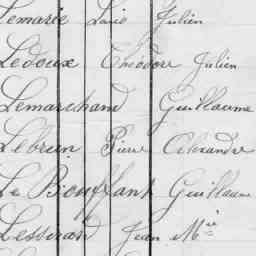 Lemarié Louis Julien
Ledoux Théodore Julien
Lemarchand Guillaume
Lebrun Pierre Alexandre
Le Bouffant Guillaume
Lesserad Jean Mie